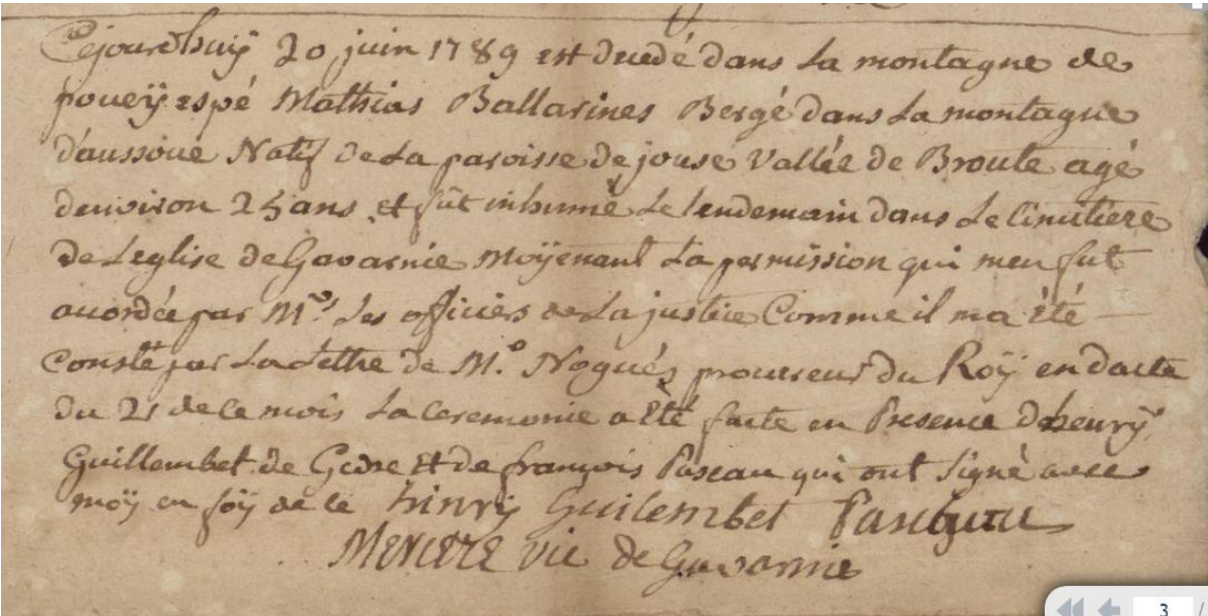 Cejourdhuÿ 20 juin 1789 est decedé dans La montagne de
poueÿ espé Mathias Ballarines Bergé dans La montagne
d'aussoue Natif de La paroisse de jouse Vallée de Broute agé
denviron 25 ans et fût inhumé Le lendemain dans Le Cimetiere
de Leglise de Gavarnie moÿenant La permission qui men fut
accordée par Mrs Les officiers de La justice Comme il ma été
Consté par La Lettre de Mr Nogués procureur du Roÿ en dacte
du 21 de ce mois La Ceremonie a été faite en Presence dhenrÿ
Guillembet de Gedre Et de françois Paseau qui ont Signé avec
moÿ en foÿ de ce hinrÿ Guilembet
vic de Gavarnie
3 /